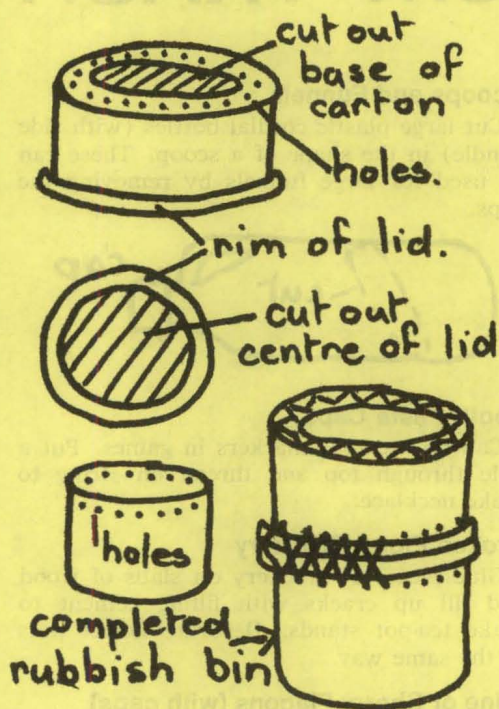 cut out
base of
carton
holes.
rim of lid.
cut out
centre of lid
holes
completed
rubbish bin